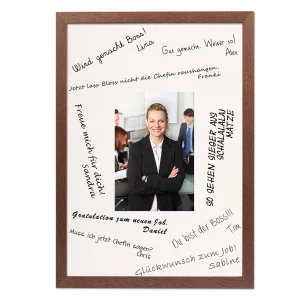 Wird gemacht Boss!
Lina
Gut gemacht. Weiter so!
Alex
Jetzt lass bloss nicht die Chefin raushängen.
Franki
Freue mich für dich!
Sandra
SO SEHEN SIEGER AUS
SCHALALALA!
MATZE
Gratulation zum neuen Job.
Daniel
Muss ich jetzt Chefin sagen?
Chris
Du bist der Boss!!!
Tim
Glückwunsch zum Job!
Sabine